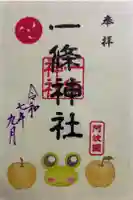 奉拝
一條神社
阿波國
令和
七年
九月